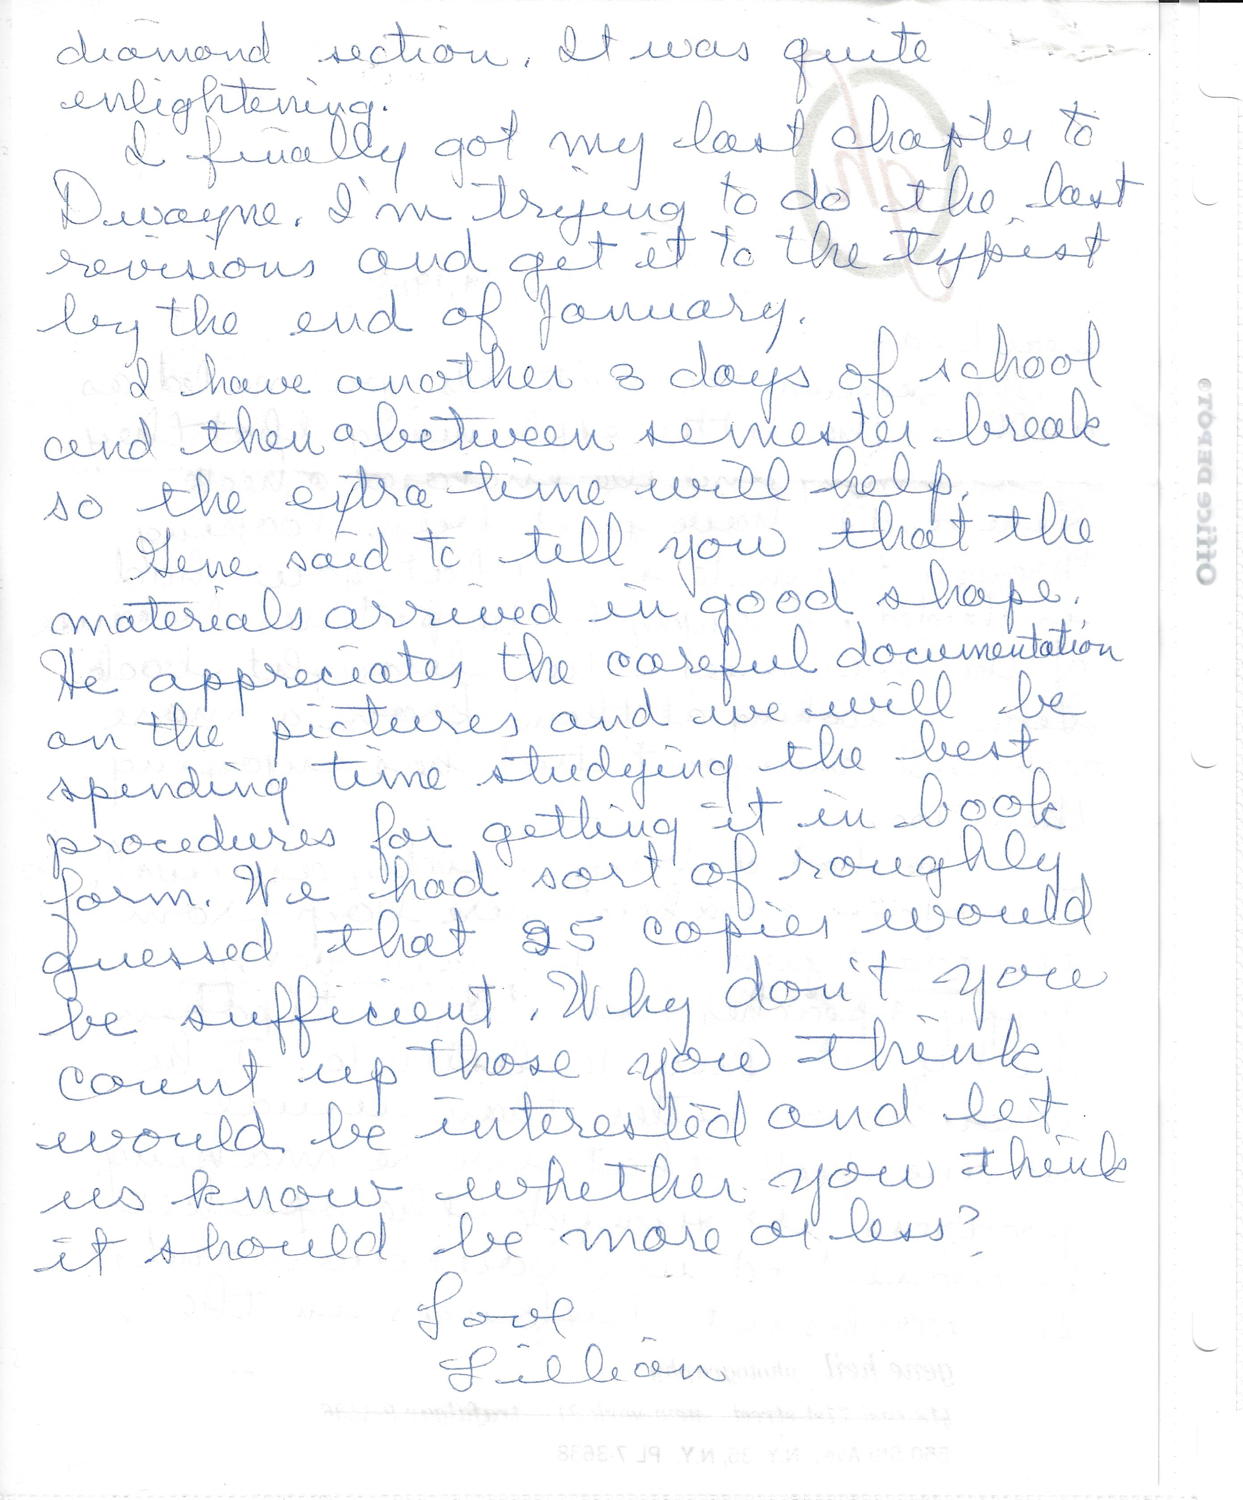 diamond section. It was quite
enlightening.
I finally got my last chapter to
Dwayne. I'm trying to do the last
revisions and get it to the typist
by the end of January.
I have another 3 days of school
and then a between semester break
so the extra time will help.
Gene said to tell you that the
materials arrived in good shape.
He appreciates the careful documentation
on the pictures and we will be
spending time studying the best
procedures for getting it in book
form. We had sort of roughly
guessed that 25 copies would
be sufficient. Why don't you
count up those you think
would be interested and let
us know whether you think
it should be more or less?
Love
Lillian
Office DEPOT
gene heil
550 5th Ave., N.Y. 36, N.Y. PL 7-3638